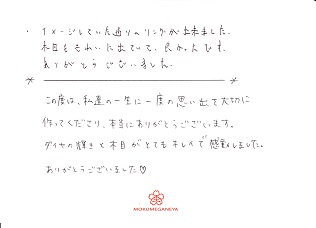 ・イメージしていた通りのリングが出来ました。
木目もきれいに出ていて、良かったです。
ありがとうございました。
この度は、私達の一生に一度の思い出を大切に
作ってくださり、本当にありがとうございます。
ダイヤの輝きと木目がとてもキレイで感動しました。
ありがとうございました♡
MOKUMEGANEYA